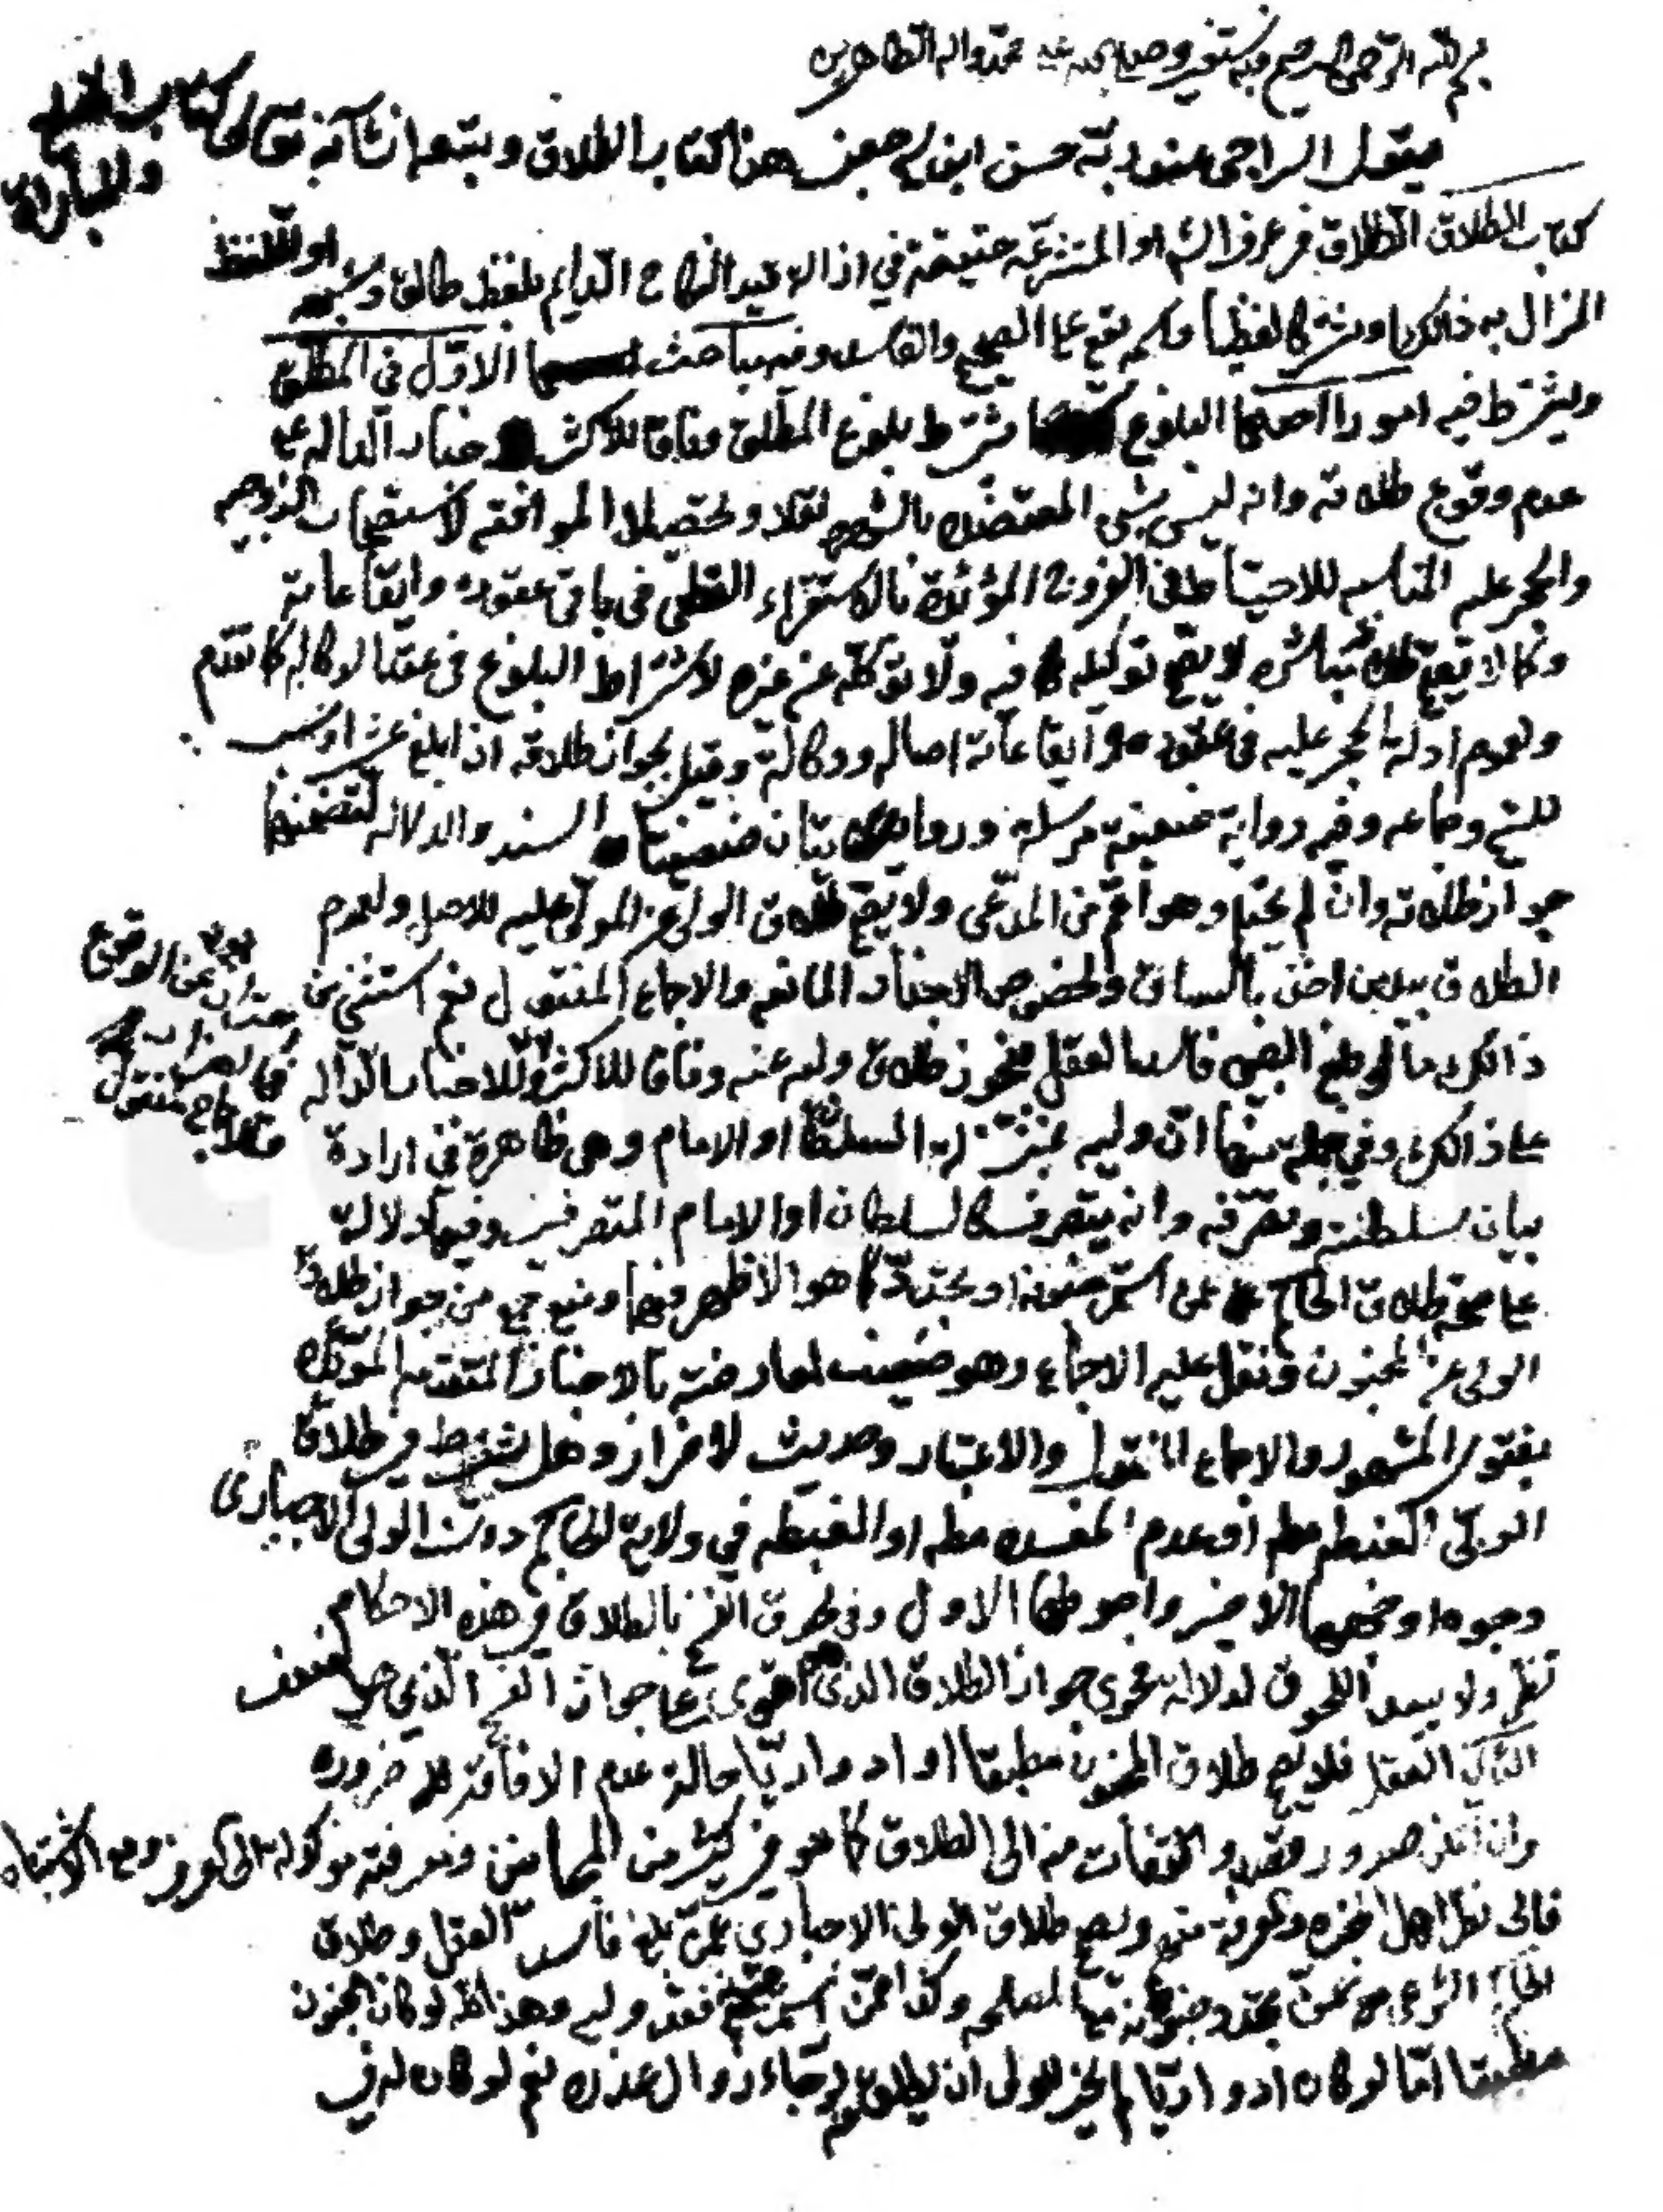 بسم الله الرحمن الرحيم وبه نستعين وصلى الله على محمد واله الطاهرين
يقول الراجي عفو ربه حسن ابن جعفر هذا كتاب الطلاق ويتبعه انشاء الله تعالى كتاب الخلع
والمباراة
كتاب الطلاق الطلاق في عرف الش او المتشرعه حقيقة في ازالة قيد النكاح الدايم بلفظ طالق وشبهه او اللفظ
المزال به ذالك او مشترك لفظيا وكم يقع على الصحيح والفاسد وفيه مباحث الاول في المطلق
ويشترط فيه امور احدها البلوغ يشترط بلوغ المطلق وفاقا للاكثر لاخبار الداله على
عدم وقوع طلاقه وانه ليس بشي المعتضده بالشهره نقلا وتحصيلا الموافقه لاستصحاب الزوجيه
والحجر عليه المناسبه للاحتياط في الفروج المؤيدة بالاستقراء القطعي في باقي عقوده وايقاعاته
وكما لا يقع طلاقه مباشره لا يقع توكيله فيه ولا توكله عن غيره لاشتراط البلوغ في عقد الوكاله كما تقدم
ولعموم ادلة الحجر عليه في عقوده وايقاعاته اصاله ووكالة وقيل بجواز طلاقه اذا بلغ عشرا ونسب
للشيخ وجماعه وفيه رواية ضعيفة مرسله وروايتان ضعيفتا السند والدلاله لتضمنها
جواز طلاقه وان لم يحتلم وهو اعم من المدعى ولا يقع طلاق الولي عن المولى عليه للاصل ولعموم
الطلاق بيد من اخذ بالساق ولخصوص الاخبار المانعه والاجماع المنقول نعم استثني من
ذالك ما لو بلغ الصبي فاسد العقل فيجوز طلاق وليه عنه وفاقا للاكثر وللاخبار الداله
على ذالك وفي جملة منها ان وليه بمنزلة السلطان او الامام وهي ظاهرة في ارادة
بيان سلطنته وتصرفه وانه يتصرف كالسلطان او الامام المتصرف وفيها دلالة
على صحة طلاق الحاكم عمن استمر جنونه او تجدد كما هو الاظهر فيهما ومنع جمع من جواز طلاق
الولي عن المجنون ونقل عليه الاجماع وهو ضعيف لمعارضته بالاخبار المتقدمه المؤيده
بفتوى المشهور والاجماع المنقول والاعتبار وحديث لا ضرار وهل يشترط في طلاق
الولي الغبطه مطه او عدم المفسده مطه او الغبطه في ولاية الحاكم دون الولي الاجباري
وجوه اوجهها الاخير واحوطها الاول وفي لحوق الفسخ بالطلاق في هذه الاحكام
نظر ولا يبعد اللحوق لدلالة فحوى جواز الطلاق الذي هو اقوى على جواز الفسخ الذي هو اضعف
الثاني العقل فلا يقع طلاق المجنون مطبقا او ادواريا حالة عدم الافاقة للضرورة
وان امكن صدور قصد والتفات منه الى الطلاق كما هو في كثير من المجانين ومعرفته موكولة الى العرف ومع الاشتباه
فالى نظر اهل الخبره ومعرفته منهم ويصح طلاق الولي الاجباري عمن بلغ فاسد العقل وطلاق
الحاكم الشرعي عمن تجدد جنونه مع المصلحه وكذا عمن استمر جنونه وفقد وليه وهذا كله لو كان الجنون
مطبقا اما لو كان ادواريا لم يجز للولي ان يطلق لرجاء زوال عذره نعم لو كان له في